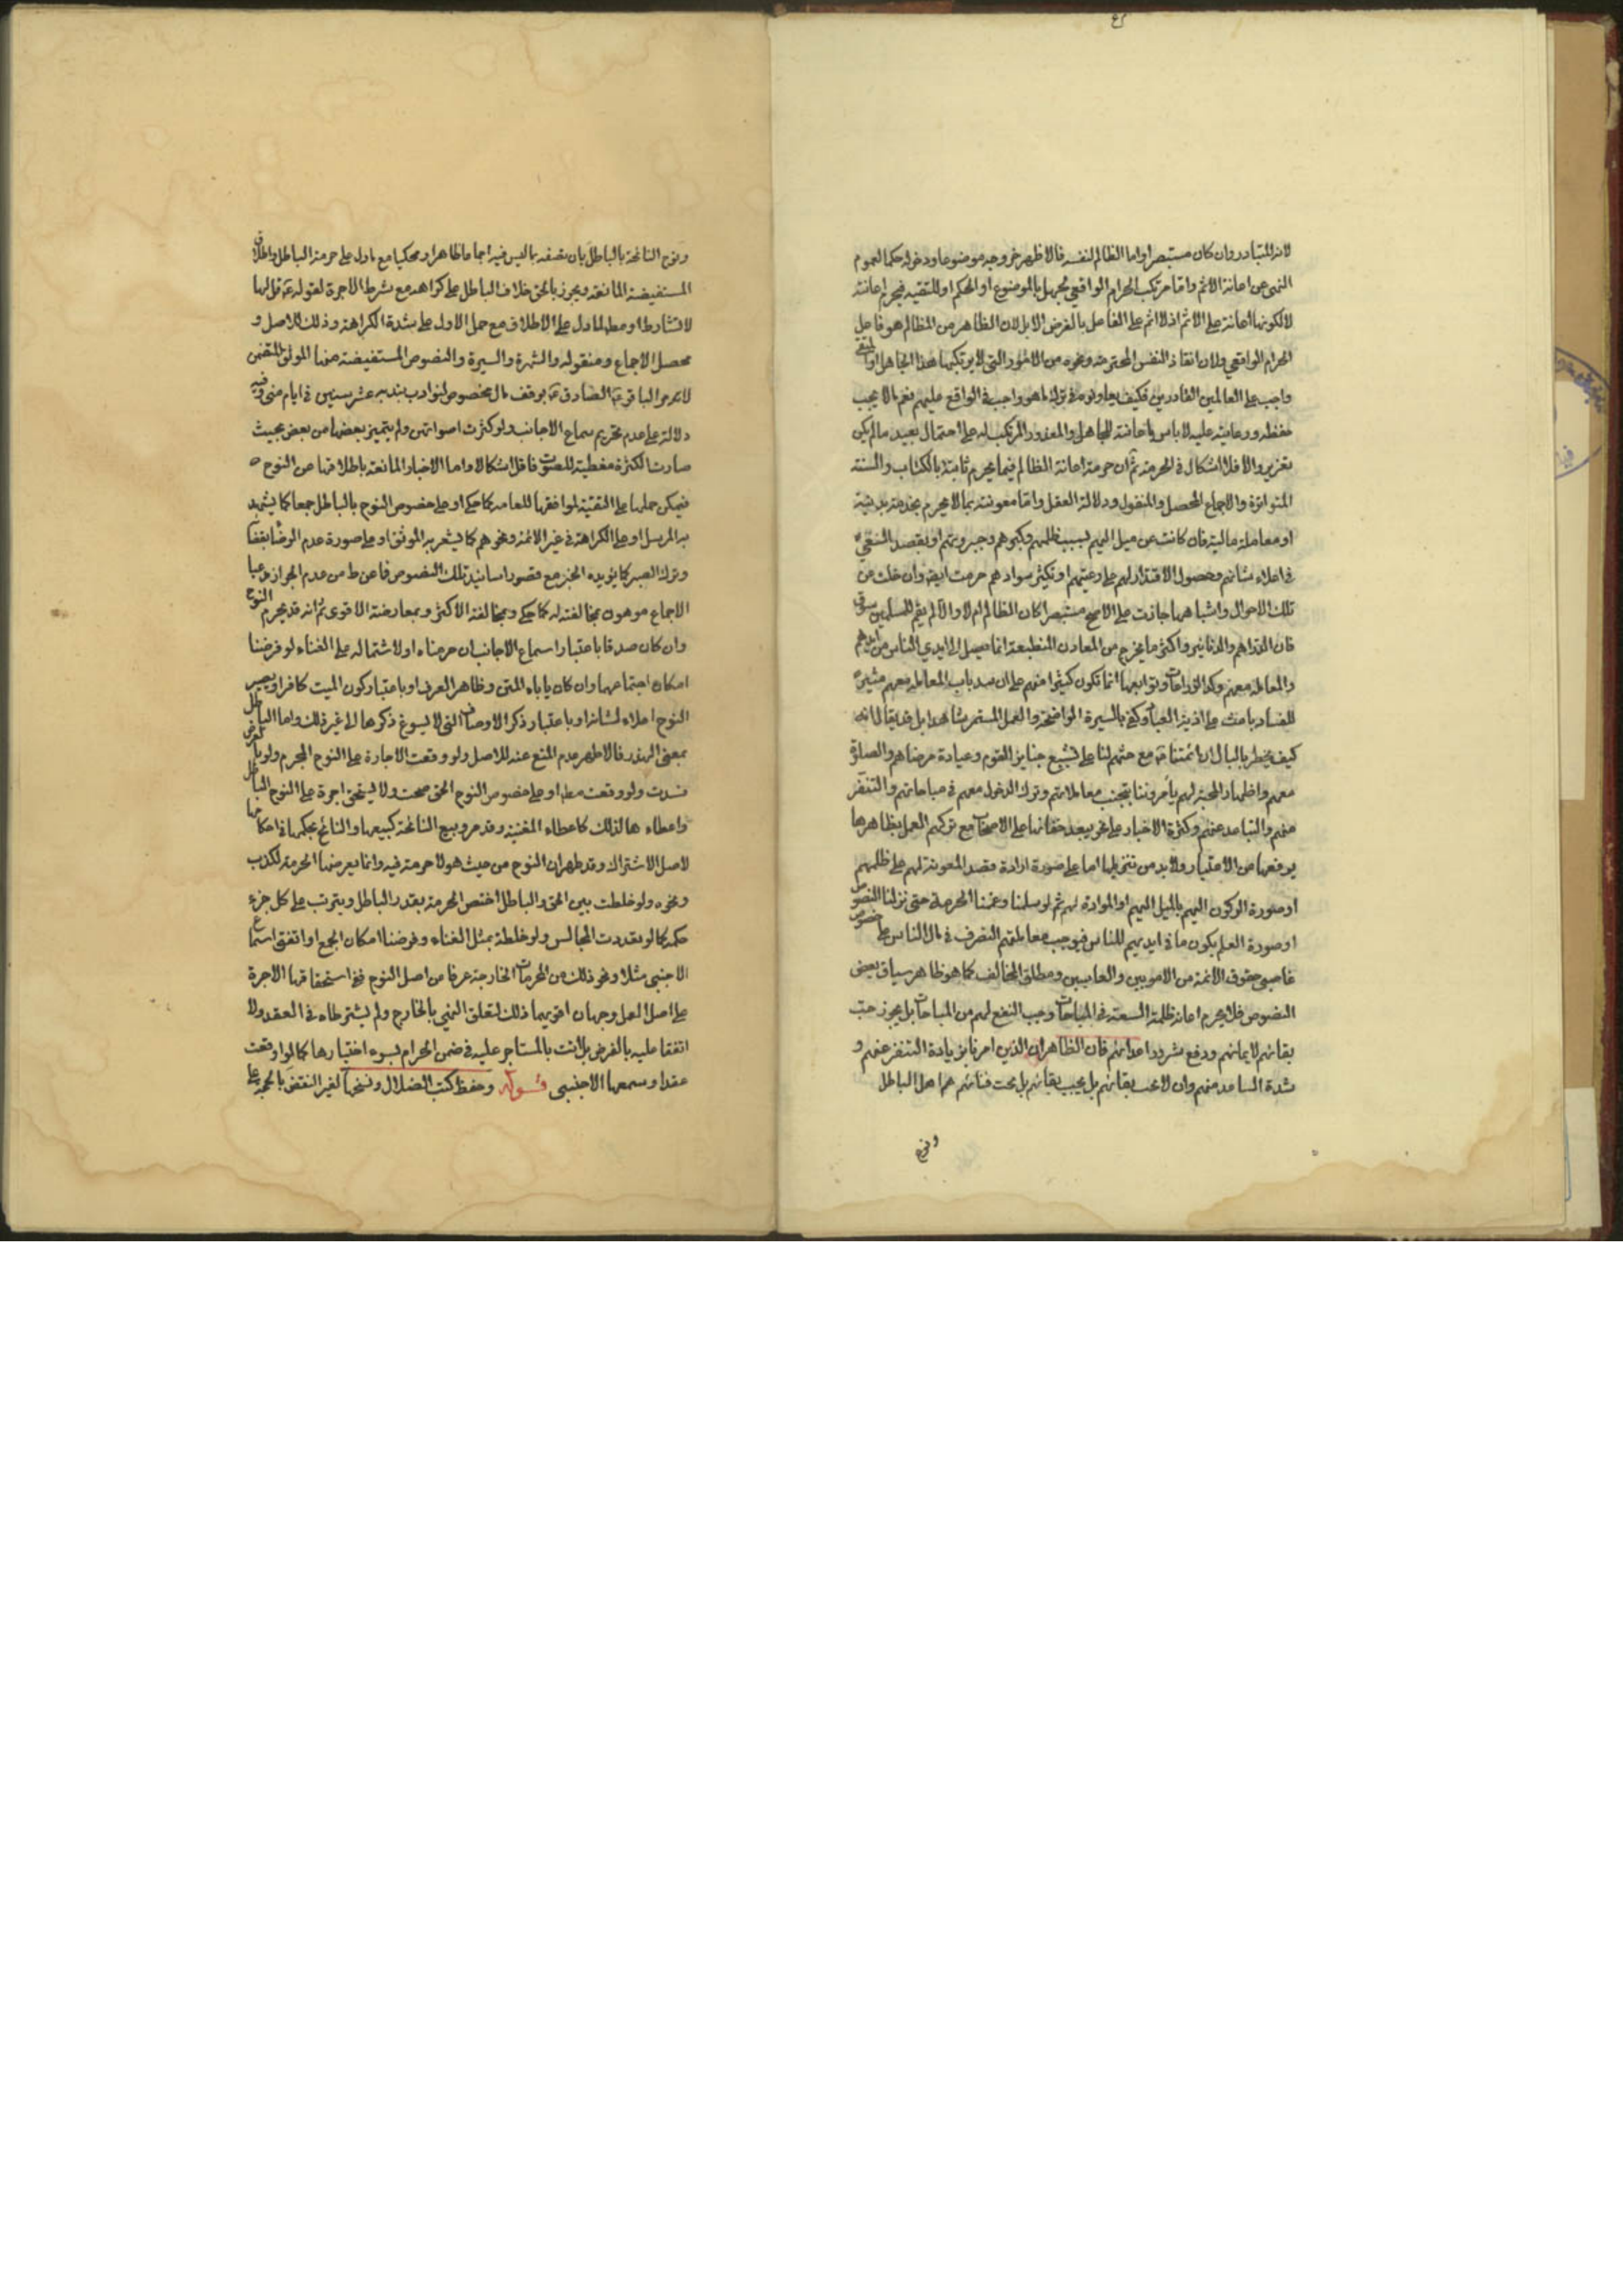 لانه المتبادر وان كان مستبصرا واما الظالم لنفسه فالاظهر خروجه موضوعا ودخوله حكما لعموم
النهى عن اعانة الاثم واما مرتكب الحرام الواقعي لجهله بالموضوع او الحكم او للتقيه فيحرم اعانته
لا لكونها اعانة على الاثم اذ لا اثم على الفاعل بالفرض الا بل لان الظاهر من الظالم هو فاعل
الحرام الواقعي ولان انقاذ النفس المحترمه ونحوه من الامور التى لا يرتكبها هذا الجاهل او المتقي
واجب على العالمين القادرين فكيف يعاونوه فى ترك ما هو واجب فى الواقع عليهم نعم ما لا يجب
حفظه ورعايته عليه لا باس باعانته للجاهل والمعذور المرتكب له على احتمال بعيد ما لم يكن
بتغرير والا فلا اشكال فى الحرمة ثم ان حرمة اعانة الظالم فيما يحرم ثابتة بالكتاب والسنة
المتواترة والاجماع المحصل والمنقول ودلالة العقل واما معونته بما لا يحرم بخدمة بدنية
او معاملة مالية فان كانت عن ميل اليهم لسبب ظلمهم وكبرهم وجبروتهم او بقصد السعي
فى اعلاء شانهم وحصول الاقتدار لهم على رعيتهم او تكثير سوادهم حرمت ايضا وان خلت عن
تلك الاحوال واشباهها جازت على الاصح مستبصرا كان الظالم ام لا والا لم يقم للمسلمين سوق
فان الدراهم والدنانير واكثر ما يخرج من المعادن المنطبعة انما يصل الى ايدي الناس من ايديهم
والمعامله معهم وكذا الزراعات وتوابعها انما تكون كثيرا منهم على ان سد باب المعامله معهم مثيرة
للفساد باعث على اذية العباد وكفى بالسيرة الواضحة والعمل المستمر شاهدا بل قد يقال انه
كيف يخطر بالبال ان ائمتنا ع مع حثهم لنا على تشييع جنايز القوم وعيادة مرضاهم والصلوة
معهم واظهار المحبة لهم يأمروننا بتجنب معاملاتهم وترك الدخول معهم فى مباحاتهم والتنفر
منهم والتباعد عنهم وكثرة الاخبار على نحو يبعد خفائها على الاصحاب مع تركهم العمل بظاهرها
يرفعها عن الاعتبار ولا بد من تنزيلها اما على صورة ارادة قصد المعونة لهم على ظلمهم
او صورة الركون اليهم بالميل اليهم او الموادة لهم ثم لو سلمنا وعممنا الحرمة حتى نزلنا النصوص
او صورة العلم بكون ما فى ايديهم للناس فيوجب معاملتهم التصرف فى مال الناس على خصوص
غاصبى حقوق الائمة من الامويين والعباسيين ومطلق المخالف كما هو ظاهر سياق بعض
النصوص فلا يحرم اعانة ظلمة الشيعة فى المباحات وجب النفع لهم من المباحات بل يجوز حب
بقائهم لايمانهم ودفع شرور اعدائهم فان الظاهر ان الذين امرنا بزيادة التنفر عنهم و
شدة التباعد منهم وان لا نحب بقائهم بل يجب بقائهم بل نحب فنائهم هم اهل الباطل
ونوح
ونوح النائحة بالباطل بان تصفه بما ليس فيه اجماعا ظاهرا ومحكيا مع ما دل على حرمة الباطل واطلاق
المستفيضة المانعة ويجوز بالحق خلاف الباطل على كراهة مع شرط الاجرة لقوله ع قل لها
لا تشارط او مطلقا لما دل على الاطلاق مع حمل الاول على شدة الكراهة وذلك للاصل و
محصل الاجماع ومنقوله والشهرة والسيرة والنصوص المستفيضة منها الموثق المتضمن
لامر مو الباقر ع الصادق ع بوقف مال مخصوص لنوادب تندبه عشر سنين فى ايام منى وفيه
دلالة على عدم تحريم سماع الاجانب ولو كثرت اصواتهن ولم يتميز بعضها من بعض بحيث
صارت الكثرة مغطية للصوت فاقل اشكالا واما الاخبار المانعة باطلاقها عن النوح
فيمكن حملها على التقية لموافقتها للعامه كما حكى او على خصوص النوح بالباطل جمعا كما يشهد
به المرسل او على الكراهة فى غير الائمة ونحوهم كما يشعر به الموثق او على صورة عدم الرضا بقضاء
وترك الصبر كما يؤيده الخبر مع قصور اسانيد تلك النصوص فما عن ط من عدم الجواز مدعيا
الاجماع موهون بمخالفته له كما حكى وبمخالفة الاكثر وبمعارضة الاقوى ثم انه قد يحرم النوح
وان كان صدقا باعتبار اسماع الاجانب ان حرمناه او لاشتماله على الغناء لو فرضنا
امكان اجتماعهما وان كان ياباه المتن وظاهر العرف او باعتبار كون الميت كافرا ويصير
النوح اعلاء لشانه او باعتبار ذكر الاوصاف التى لا يسوغ ذكرها الى غير ذلك واما الباطل
بمعنى الهذر فالاظهر عدم المنع عنه للاصل ولو وقعت الاجارة على النوح المحرم ولو بالعرض
فسدت ولو وقعت مطلقا او على خصوص النوح الحق صحت ولا يستحق اجرة على النوح الباطل
واعطاءها لذلك كاعطاء المغنية وقد مر وبيع النائحة كبيعها والنائح بحكمها فى احكامها
لاصل الاشتراك وقد ظهر ان النوح من حيث هو لا حرمة فيه وانما يعرضها الحرمة للكذب
ونحوه ولو خلطت بين الحق والباطل اختص الحرمة بقدر الباطل ويترتب على كل جزء
حكمه كما لو تعددت المجالس ولو خلطة بمثل الغناء وفرضنا امكان الجمع او اتفق استماع
الاجنبى مثلا ونحو ذلك من المحرمات الخارجة عرفا من اصل النوح ففى استحقاقها الاجرة
على اصل العمل وجهان اقويهما ذلك لتعلق النهي بالخارج ولم يشترطاه فى العقد ولا
اتفقا عليه بالفرض بل اتت بالمستاجر عليه فى ضمن الحرام لسوء اختيارها كما لو اوقعت
عقدا وسمعها الاجنبى قوله وحفظ كتب الضلال ونسخها لغير النقض بالحجة على